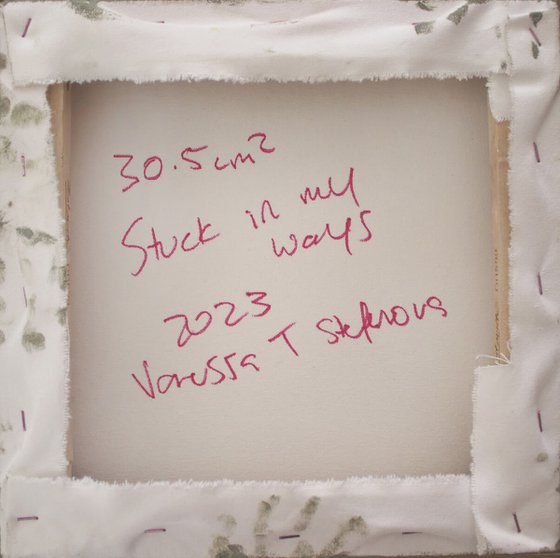 30.5cm²
Stuck in my
ways
2023
Vanessa T Stefanova